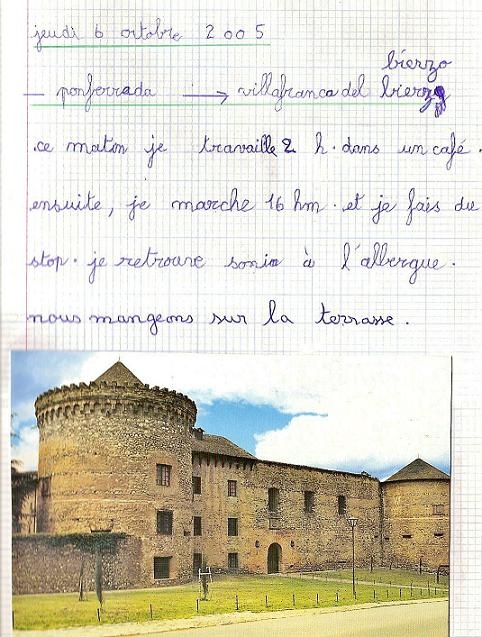 jeudi 6 octobre 2005
bierzo
— ponferrada → villafranca del bierzo
ce matin je travaille 2 h. dans un café.
ensuite, je marche 16 km. et je fais du
stop. je retrouve sonia à l'albergue.
nous mangeons sur la terrasse.